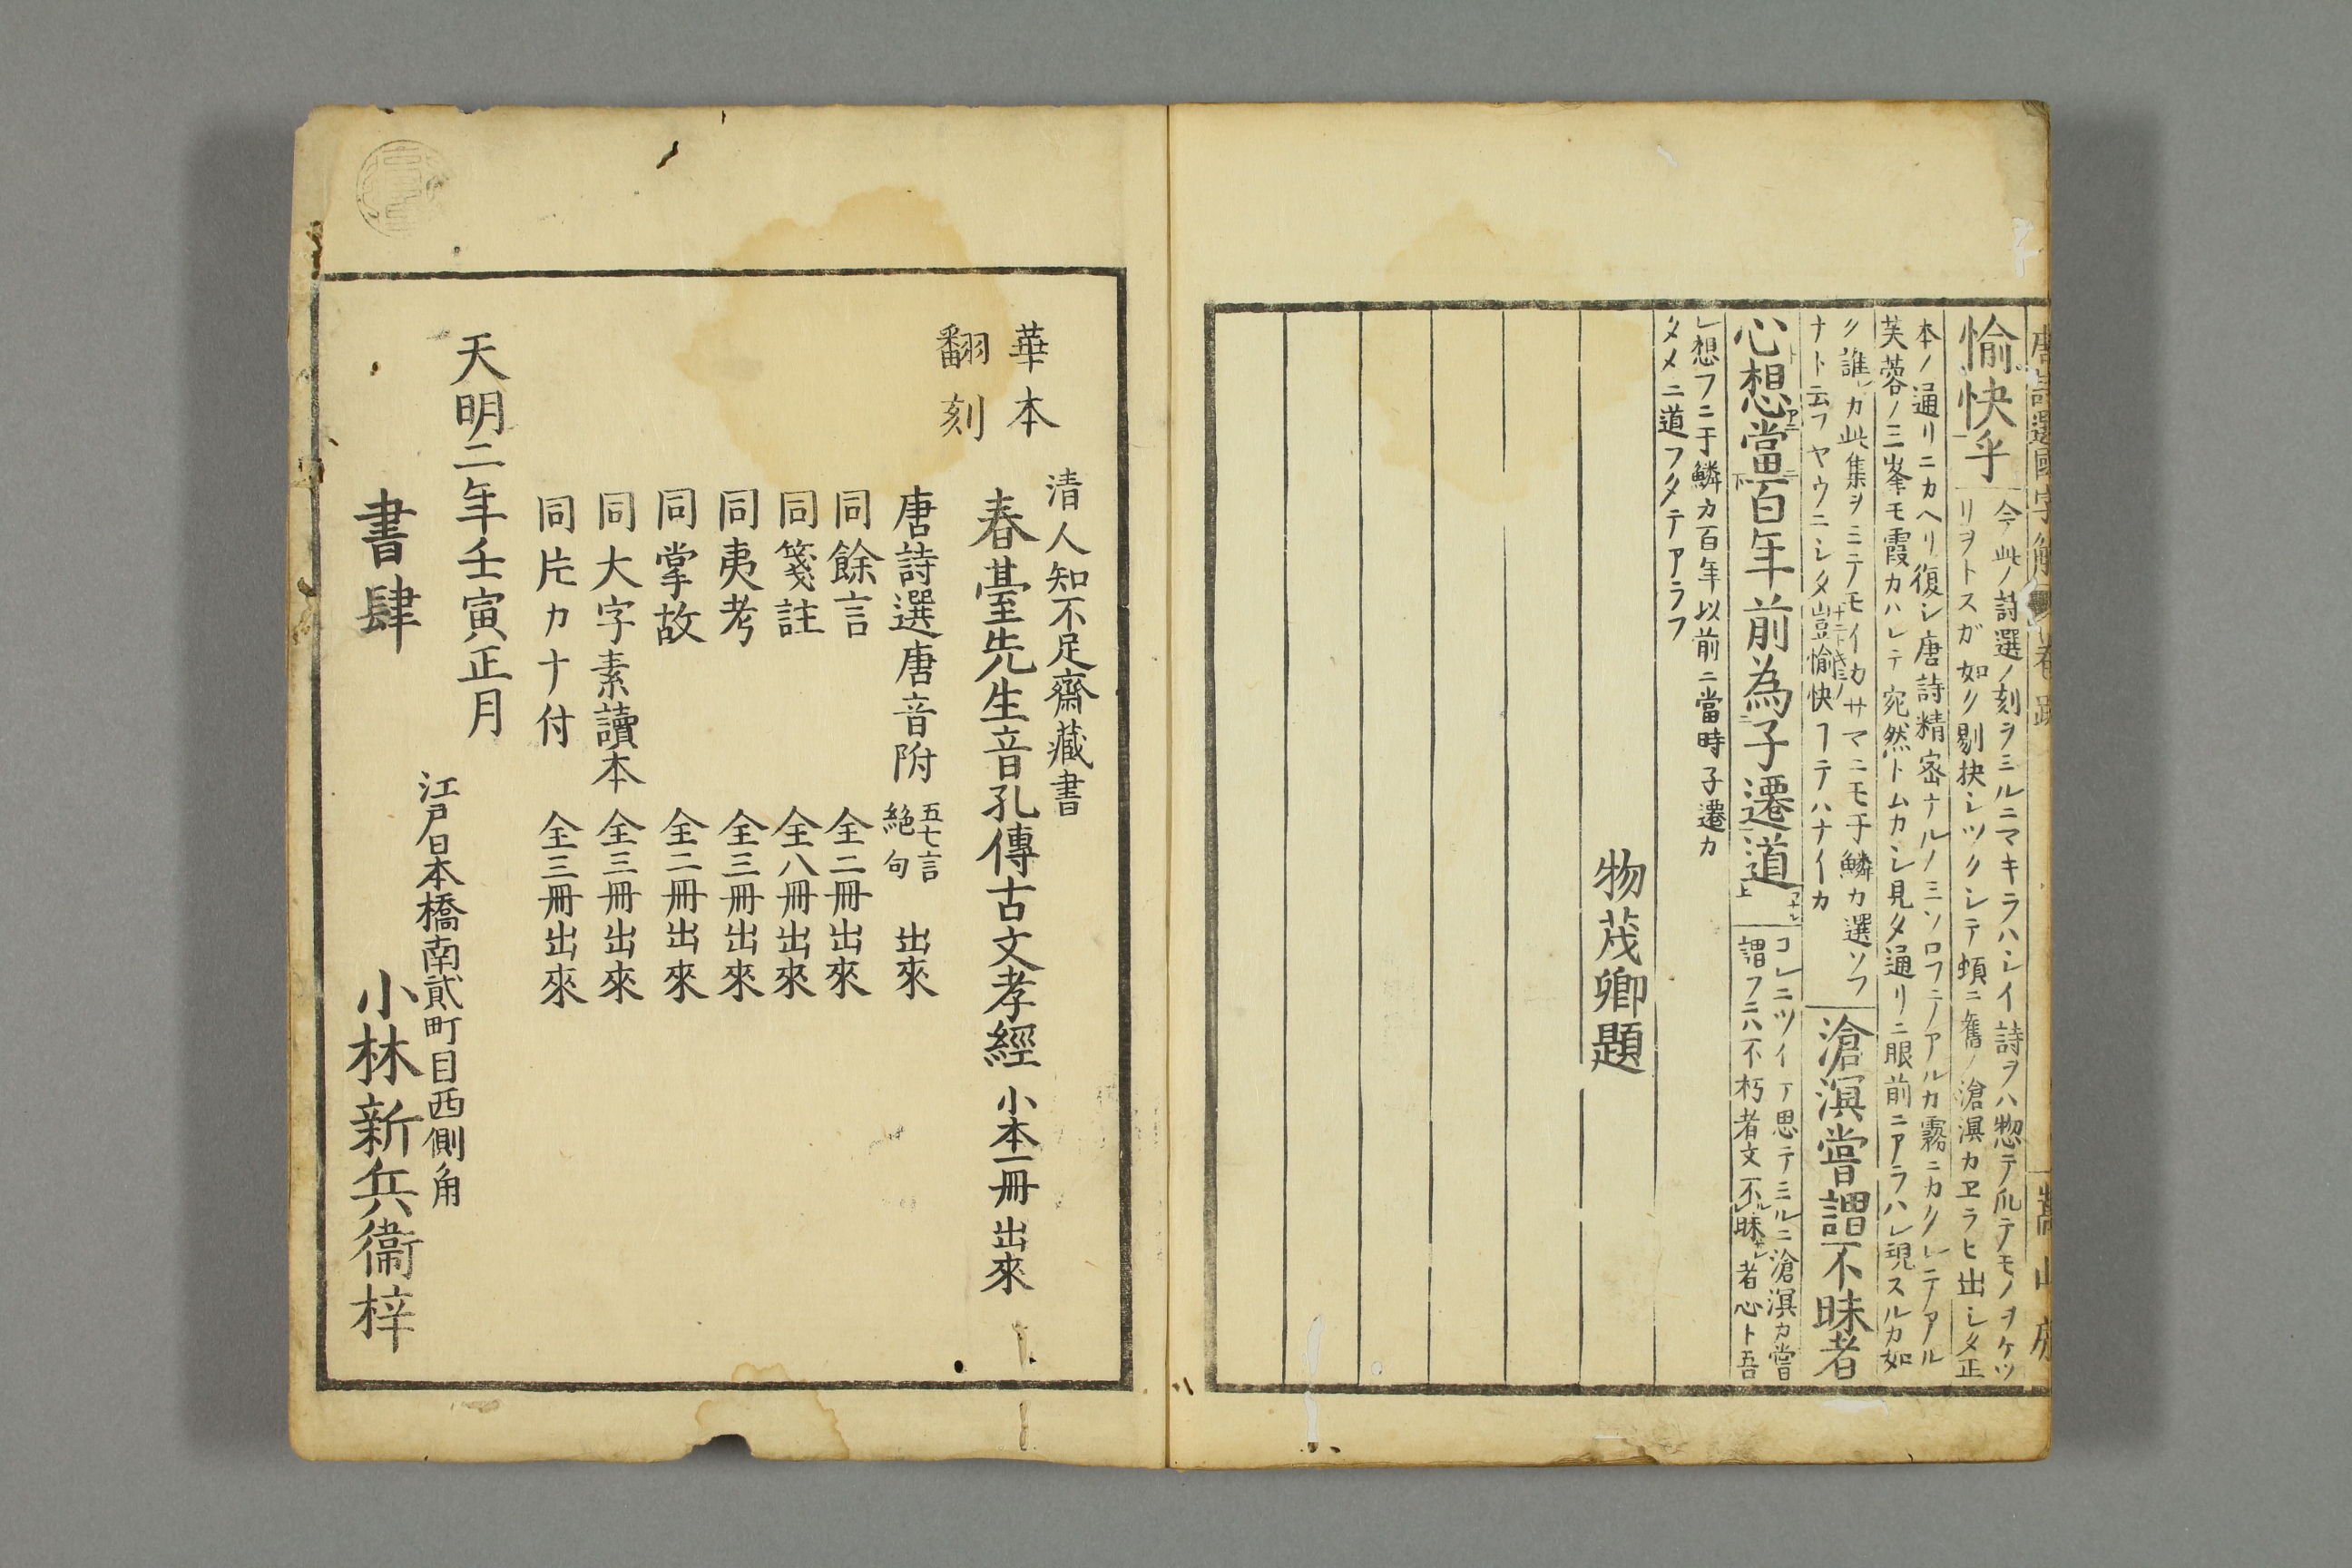 唐詩選國字解 卷 跋
嵩山房
愉快乎
今此ノ詩選ノ刻ヲミルニマキラハシイ詩ヲハ惣テ爪テノモノヲケツ
リヲトスガ如ク剔抉シツクシテ頓ニ舊ノ滄溟カヱラヒ出シタ正
本ノ通リニカヘリ復シ唐詩精密ナルノミソロフニノアルカ霧ニカクレテアル
芙蓉ノ三峯モ霞カハレテ宛然トムカシ見タ通リニ眼前ニアラハレ現スルカ如
ク誰レカ此集ヲミテモイカサマニモ于鱗カ選ソフ
ナト云フヤウニシタ豈愉快フテハナイカ
滄溟嘗謂不昧者
心想當百年前為子遷道
コレニツイテ思テミルニ滄溟カ嘗
謂フニハ不朽者文不昧者心ト吾
レ想フニ于鱗カ百年以前ニ當時子遷カ
タメニ道フタテアラフ
物茂卿題
華本
翻刻
清人知不足齋藏書
春臺先生音孔傳古文孝經 小本一冊 出來
唐詩選唐音附 五七言絶句 出來
同餘言 全二冊出來
同箋註 全八冊出來
同夷考 全三冊出來
同掌故 全二冊出來
同大字素讀本 全三冊出來
同片カナ付 全三冊出來
天明二年壬寅正月
江戸日本橋南貳町目西側角
書肆 小林新兵衞梓